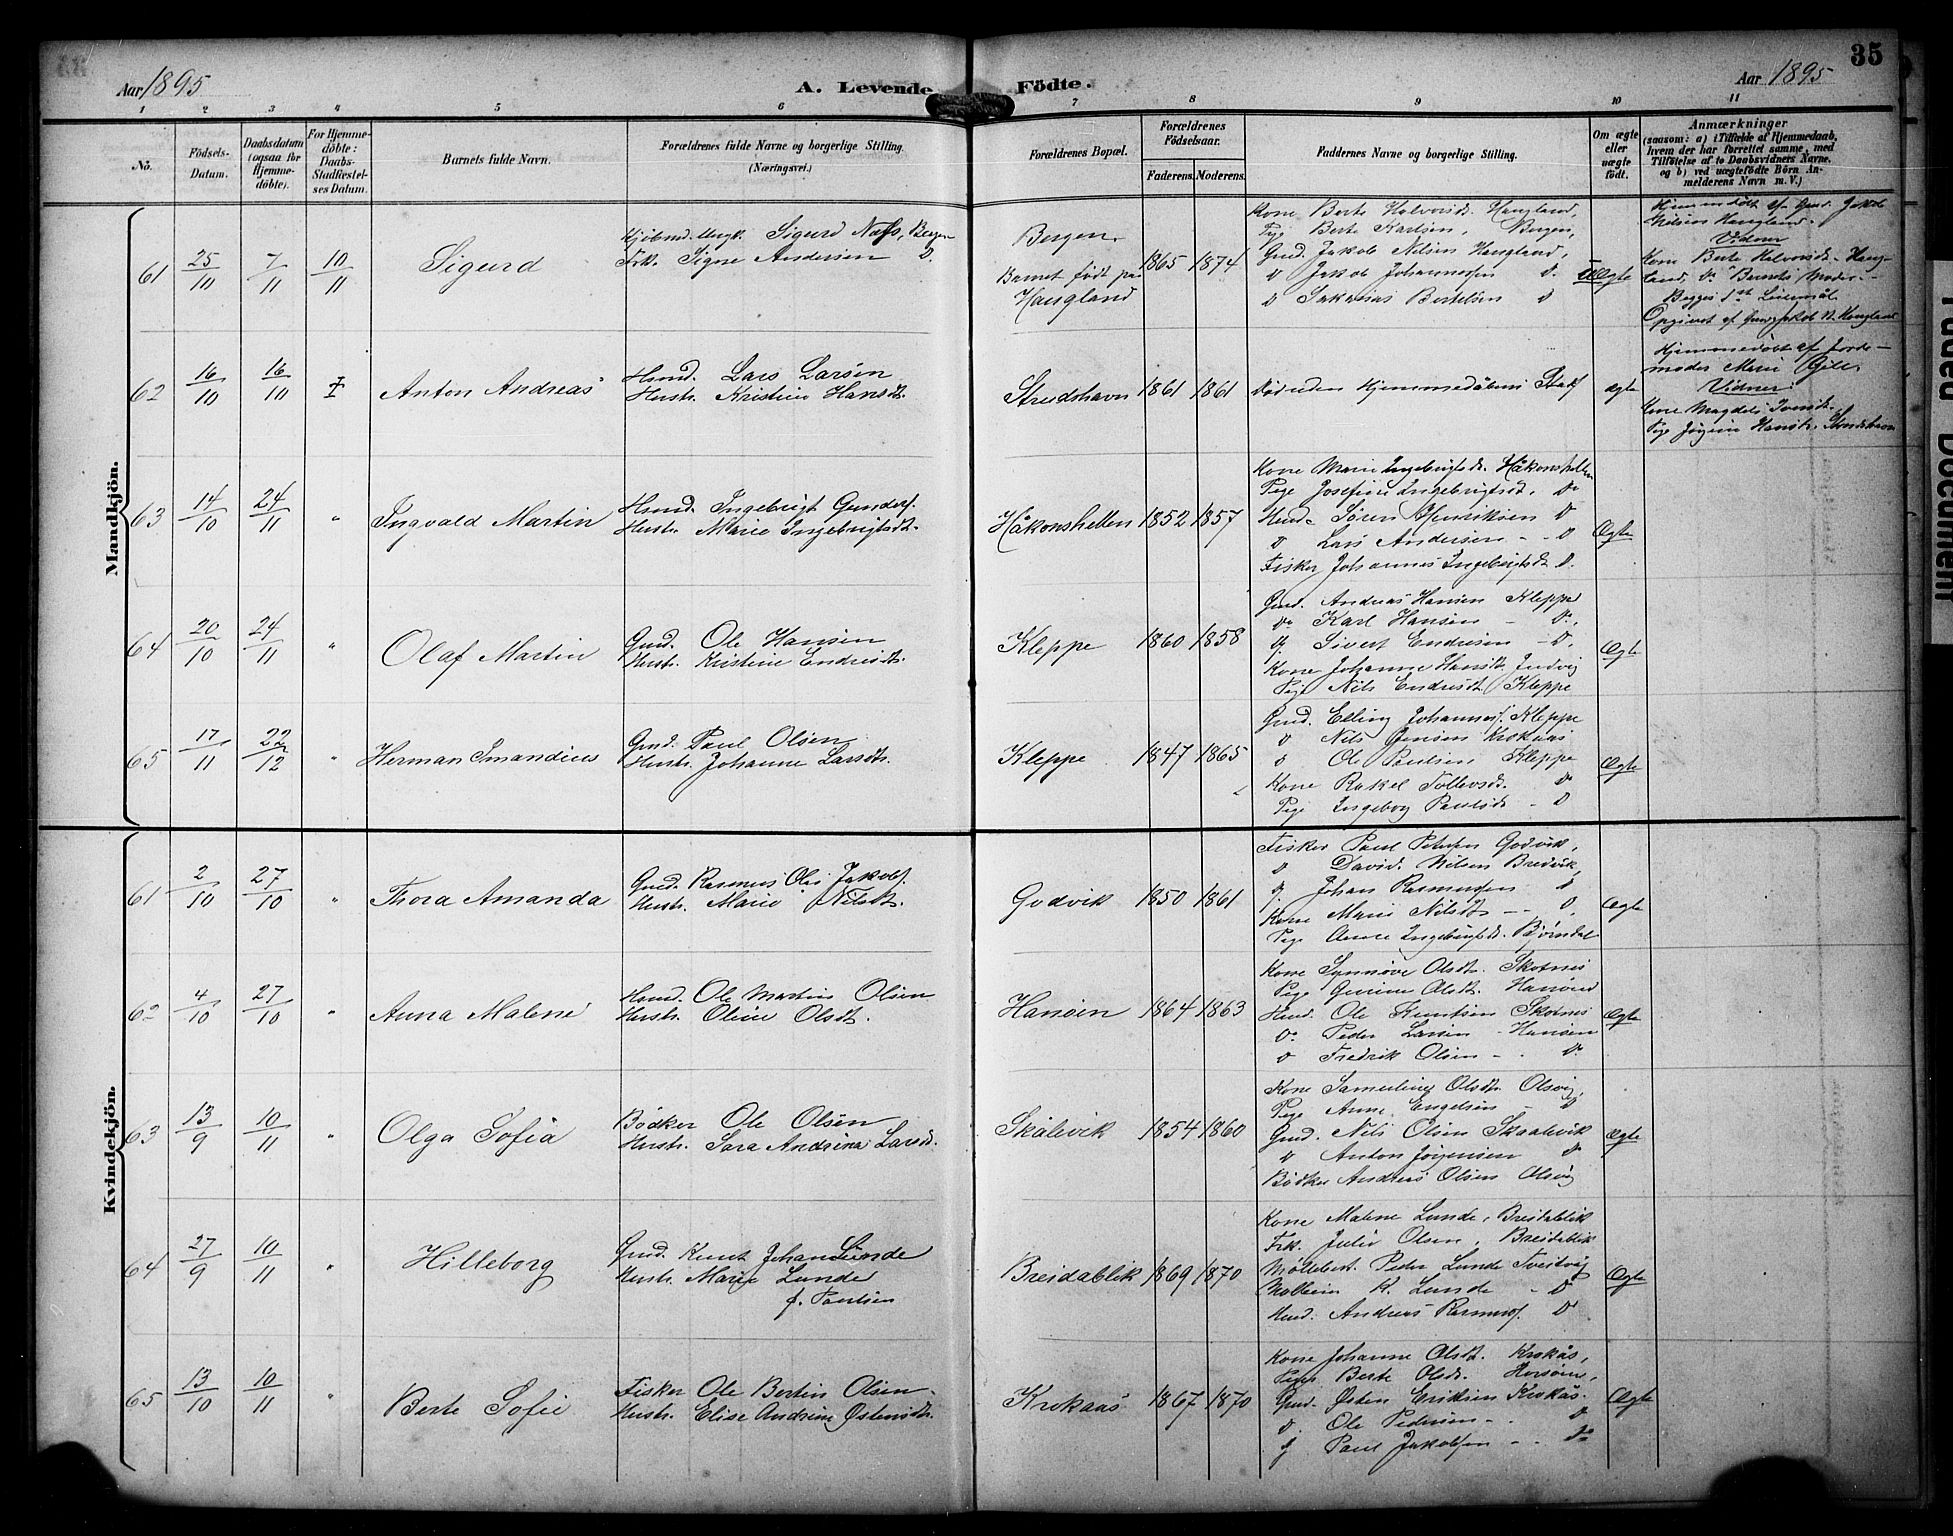 35
Aar 1895
A. Levende
Födte.
Aar 1895
1 2 3 4 5 6 7 8 9 10 11
No.
Födsels-
Datum.
Daabsdatum
(ogsaa for
Hjemme-
döbte).
For Hjemme-
döbte:
Daabs-
Stadfæstel-
ses Datum.
Barnets fulde Navn.
Forældrenes fulde Navne og borgerlige Stilling.
(Næringsvei.)
Forældrenes Bopæl.
Forældrenes
Födselsaar.
Faderens. Moderens.
Faddernes Navne og borgerlige Stilling.
Om ægte
eller
uægte
födt.
Anmærkninger
(saasom: a) i Tilfælde af Hjemmedaab,
hvem der har forrettet samme, med
Tilföielse af to Daabsvidners Navne,
og b) ved uægtefödte Börn An-
melderens Navn m. V.)
Mandkjön.
61
25/10
7/11
10/11
Sigurd
Sigurd Næss, Bergen
Frk. Signe Andersen D.
Bergen.
Barnet født på
Haugland
1865 1874
Kone Berte Halvorsd. Haugland,
Pige Berte Karlsen, Bergen,
Gmd. Jakob Nilsen Haugland,
D Jakob Johannessen D.
D Sakarias Bertelsen D
Uægte
Hjemmedøbt af Gmd. Jakob
Nilsen Haugland.
Vidner
Kone Berte Halvorsd. Haug-
land, Do Barnets Moder.
Begges 1ste Leiermål
Opgivet af Gmd. Jakob N. Haugland
62
16/10
16/10
Anton Andreas
Husmd. Lars Larsen
Hustr. Kristine Hansdt.
Strudshavn
1861 1861
Død uden Hjemmedåbens Stadf
Ægte
Hjemmedøbt af Jorde-
moder Marie
Vidner:
Kone Magdele Iversdt.
Pige Jørgine Hansdt. Strudshavn
63
14/10
24/11
"
Ingvald Martin
Husmd. Ingebrigt Gunders.
Hustr. Marie Ingebrigtsdt.
Håkonshellen
1852 1857
Kone Marie Ingebrigtsdt. Håkonshellen
Pige Josefine Ingebrigtsd. Do
Husmd. Søren Henriksen D
D Lars Andersen - - D
Fisker Johannes Ingebrigts D.
Ægte
64
20/10
24/11
"
Olaf Martin
Gmd. Ole Hansen
Hustr. Kristine Endresdt.
Kleppe
1860 1858
Gmd. Andreas Hansen Kleppe
Do Karl Hansen - D.
g. Sivert Endresen - D.
Kone Johanne Hansdt.
Nils Endresdt. Kleppe
Ægte
65
17/11
22/12
"
Herman Imandius
Gmd. Paul Olsen
Hustr. Johanne Larsdt.
Kleppe
1847 1865
Gmd. Elling Johannes. Kleppe
D Nils Jensen Krokaas
D Ole Paulsen Kleppe
Kone Rakel Tollevsd. Do
Pige Ingeborg Paulsdt. - D
Ægte
Kvindekjön.
61
2/10
27/10
"
Thora Amanda
Gmd. Rasmus Olai Jakobs.
Hustr. Marie Nilsdt.
Godvik
1850 1861
Fisker Paul Peters Godvik,
D David Nilsen Bredvik,
g. Johan Rasmussen D
Kone Marie Nilsdt. - - D.
Pige Anne Ingebrigtsd. Bjørndal
Ægte
62
4/10
27/10
"
Anna Malene
Husmd. Ole Martin Olsen
Hustr. Oline Olsdt.
Hanøen
1864 1863
Kone Synnøve Olsdt. Skotnes
Pige Gurine Olsdt. Hanøen
Husmd. Ole Knutsen Skotnes
Do Peder Larsen - Hanøen
D Fredrik Olsen - . Do
Ægte
63
13/9
10/11
"
Olga Sofia
Bødker Ole Olsen
Hustr. Sara Andrina Larsd.
Skålevik
1854 1860
Kone Samueline Olsdt. Olsvig,
Pige Anne Engelsen - D
Gmd. Nils Olsen Skaalevik
D Anton Jørgensen D
Bødker Andreas Olsen Olsvig
Ægte
64
27/9
10/11
"
Hilleborg
Gmd. Knut Johan Lunde
Hustr. Marie Lunde
f. Paulsen
Breidablik
1869 1870
Kone Malene Lunde, Breidablik
Frk. Julie Olsen, Breidablik
Møllebest. Peder Lunde Tveitvig
K. Lunde - D
Husmd. Andreas Rasmus. Do
Ægte
65
13/10
10/11
"
Berte Sofie
Fisker Ole Bertin Olsen
Hustr. Elise Andrine Østensdt.
Krokaas
1867 1870
Kone Johanne Olsdt. Krokås,
Pige Berte Olsd.
Gmd. Østen Eriksen Krokås.
D. Ole Pedersen - . D
g Paul Jakobsen - - Do
Ægte